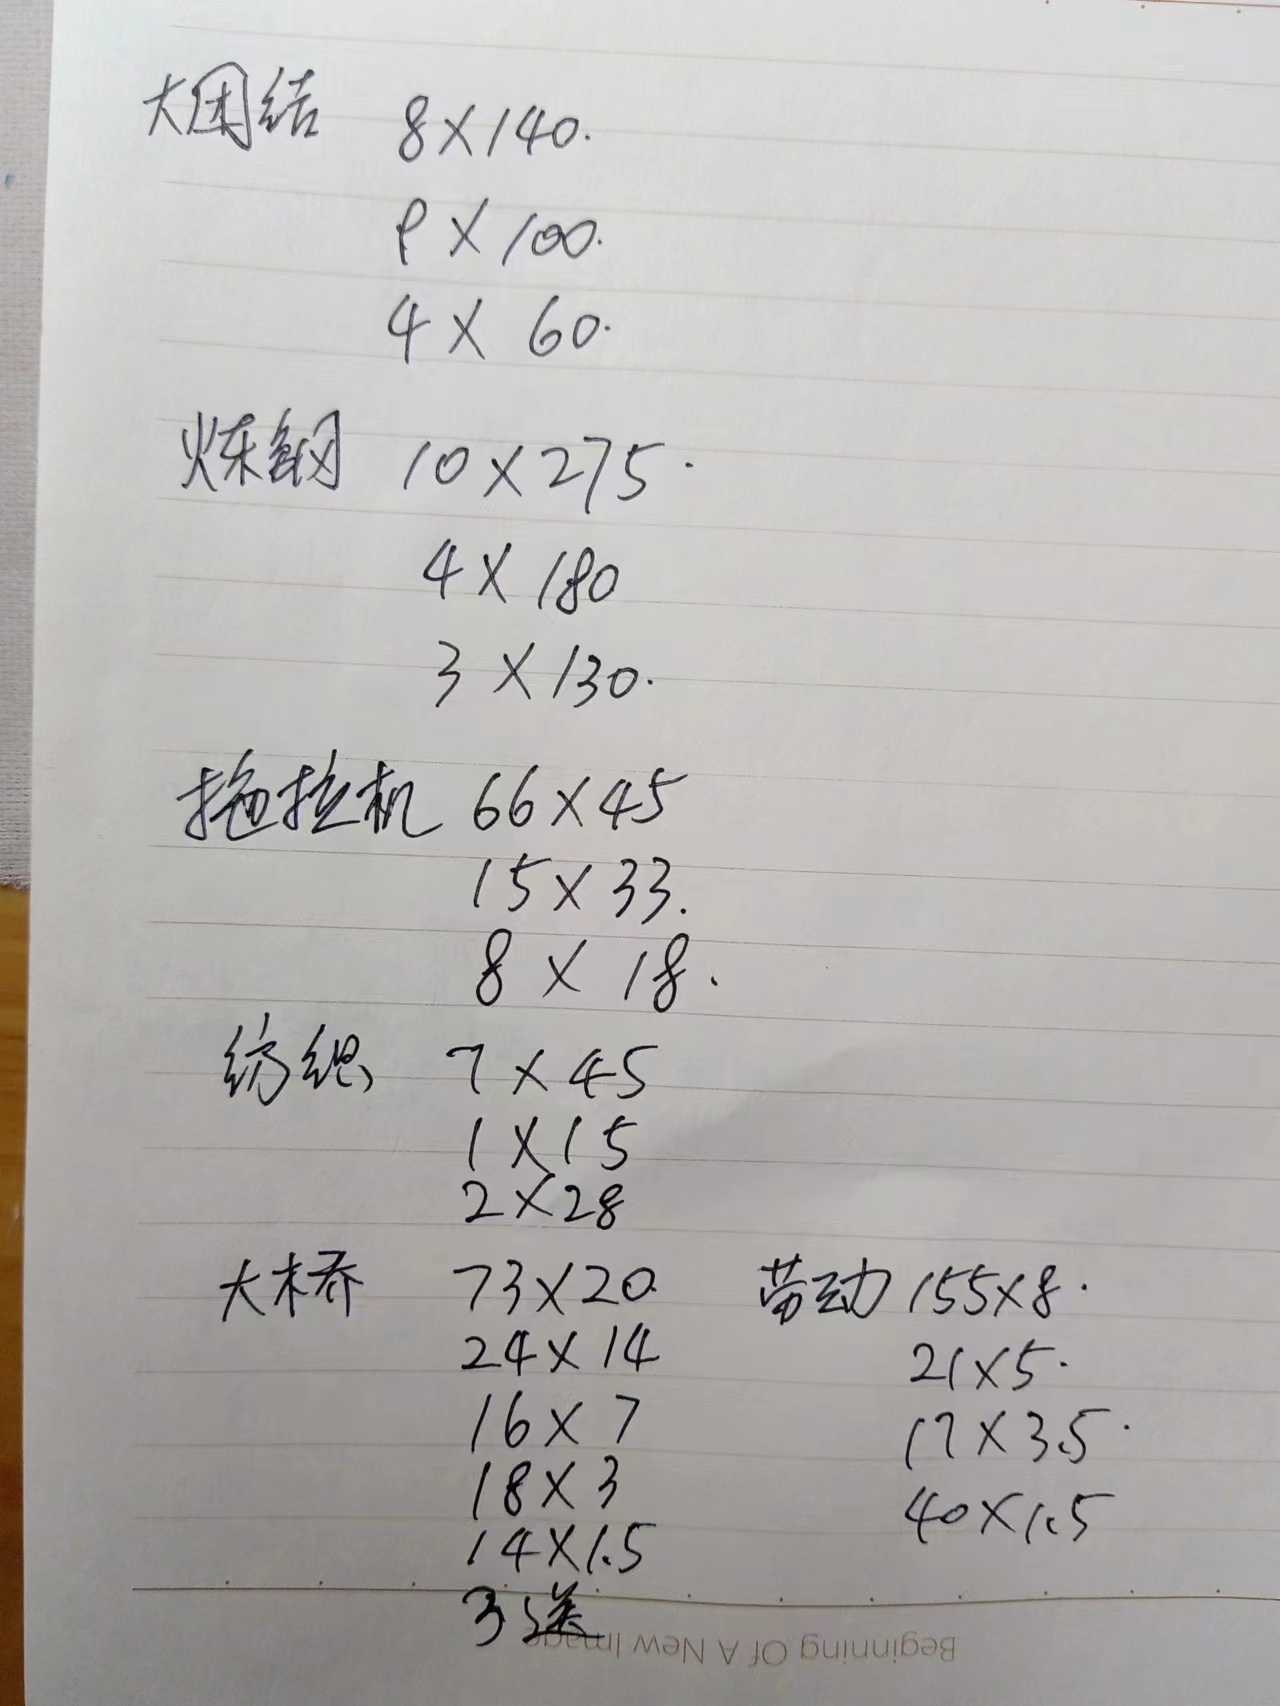 大团结 8×140.
9×100.
4×60.
炼钢 10×275.
4×180
3×130.
拖拉机 66×45
15×33.
8×18.
纺织 7×45
1×15
2×28
大桥 73×20. 劳动 155×8.
24×14 21×5.
16×7 17×3.5.
18×3 40×1.5
14×1.5
3送
Beginning Of A New Image